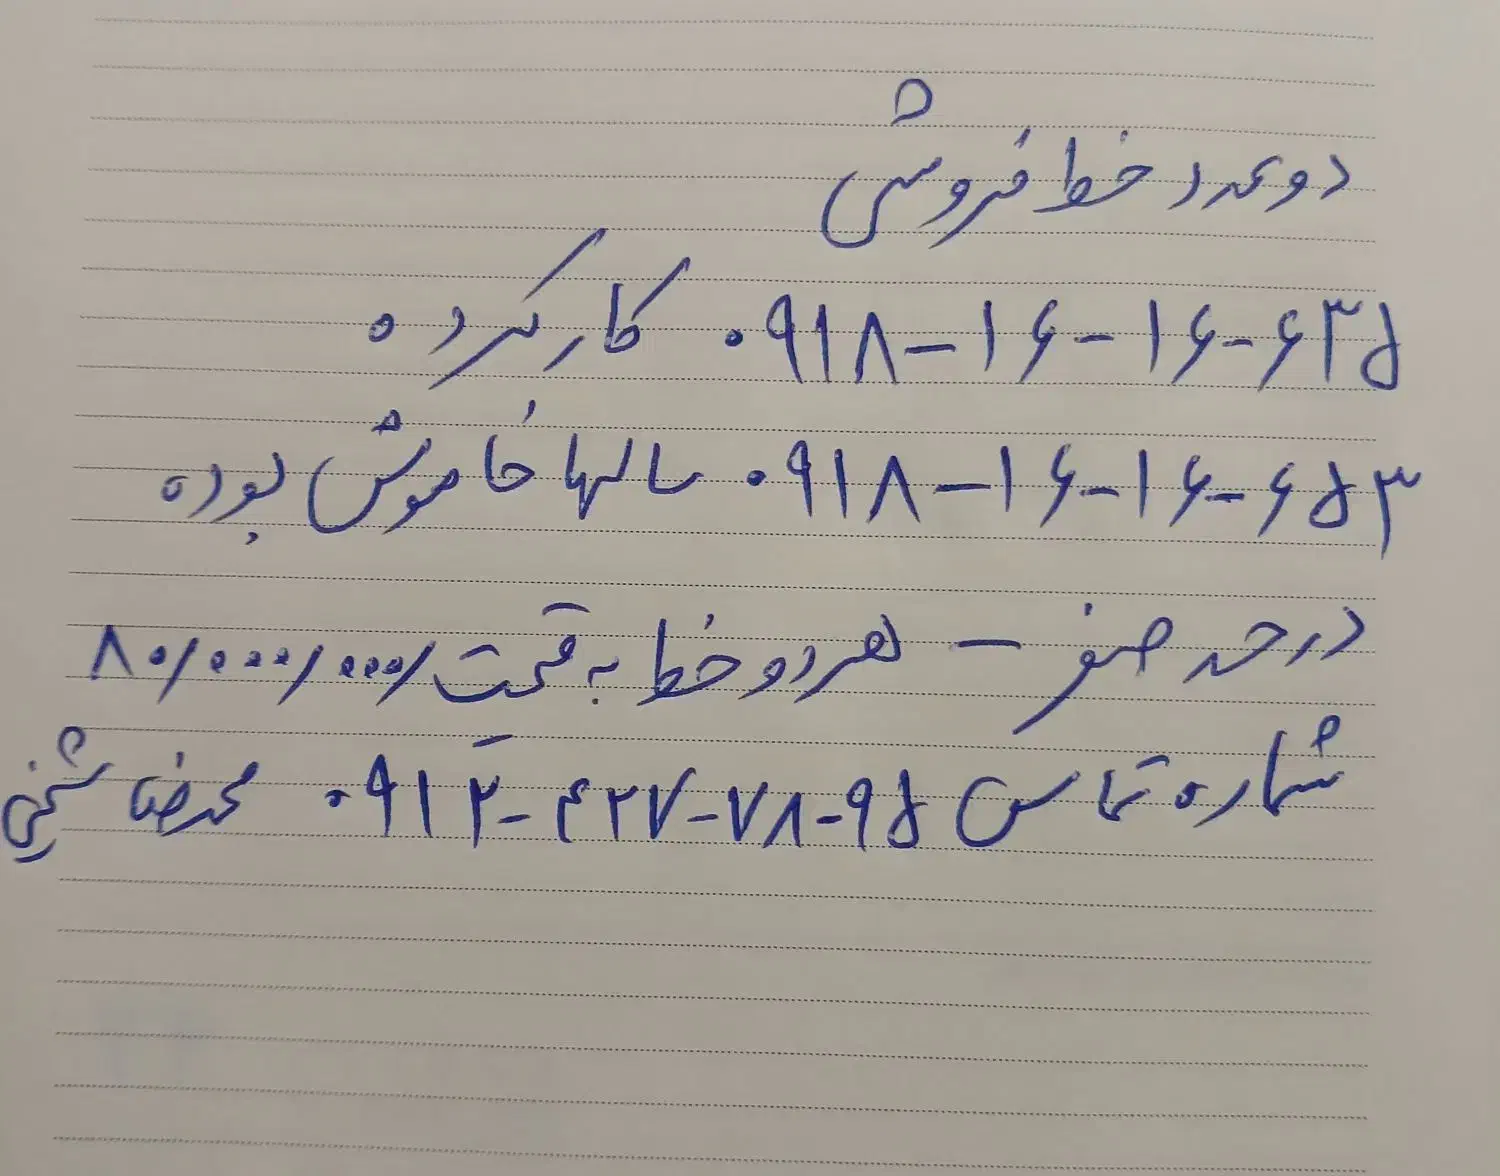 دو عدد خط فروشی
۰۹۱۸-۱۶-۱۶-۶۳۵ کارکرده
۰۹۱۸-۱۶-۱۶-۶۵۳ سالها خاموش بوده
در حد صفر - هر دو خط به قیمت ۸۰/۰۰۰/۰۰۰/
شماره تماس ۰۹۱۲-۴۲۷-۷۸-۹۵ محمدرضا